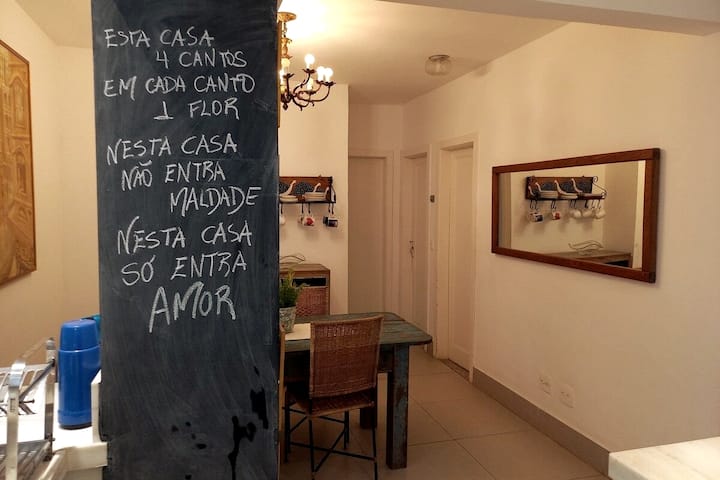 ESTA CASA
4 CANTOS
EM CADA CANTO
1 FLOR
NESTA CASA
NÃO ENTRA
MALDADE
NESTA CASA
SÓ ENTRA
AMOR